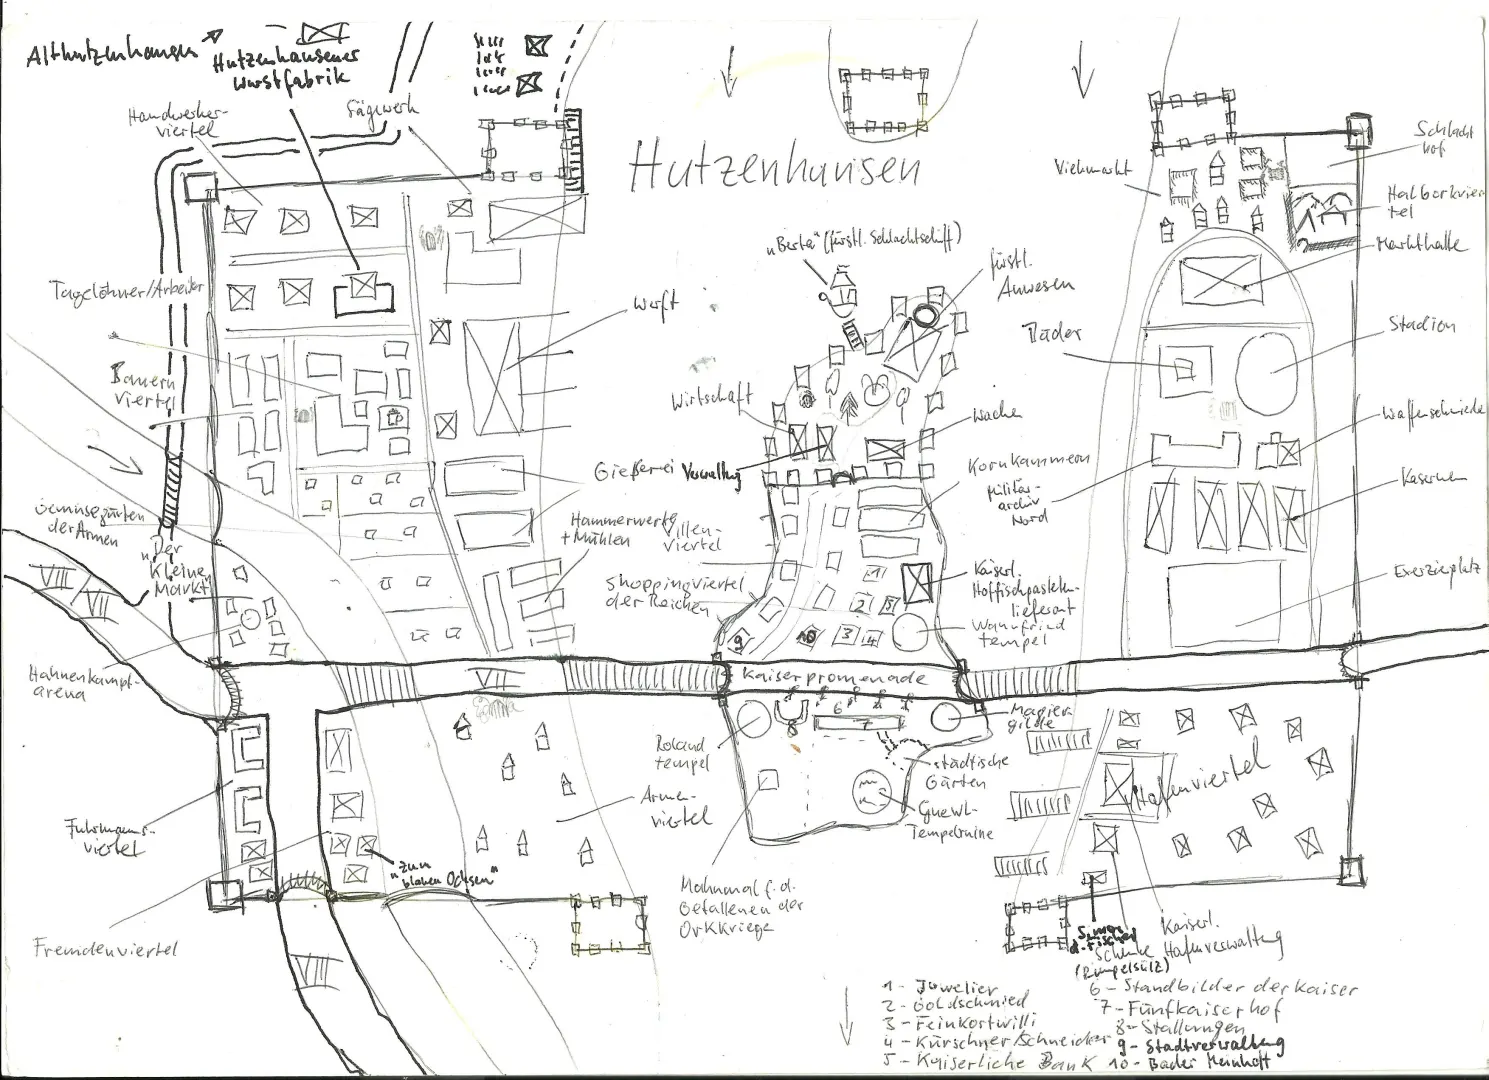 Althutzenhausen
Hutzenhausener
Wurstfabrik
Handwerker-
viertel
Sägewerk
Hutzenhausen
Viehmarkt
Schlacht
hof
Halborkvier-
tel
Markthalle
"Berta" (fürstl. Schlachtschiff)
fürstl.
Anwesen
Tagelöhner/Arbeiter
Werft
Bäder
Stadion
Bauern
viertel
Wirtschaft
Wache
Waffenschmiede
Gießerei
Verwaltung
Kornkammern
Militär-
archiv
Nord
Kasernen
Gemüsegärten
der Armen
"Der
Kleine
Markt"
Hammerwerke
+ Mühlen
Villen-
viertel
Shoppingviertel
der Reichen
Kaiserl.
Hoffischpasteten-
lieferant
Wannfried
tempel
Exerzierplatz
VIII
VII
1
2
5
9
10
3
4
Hahnenkampf-
arena
VII
Kaiserpromenade
6
7
8
Magier-
gilde
Roland
tempel
städtische
Gärten
Hafenviertel
Armen-
viertel
Tempelruine
Fuhrmanns-
viertel
"Zum
blauen Ochsen"
Mahnmal f. d.
Gefallenen der
Orkkriege
Fremdenviertel
VIII
Schenke
(Rümpelsülz)
Kaiserl.
Hafenverwaltung
1 - Juwelier
2 - Goldschmied
3 - Feinkostwilli
4 - Kürschner/Schneider
5 - Kaiserliche Bank
6 - Standbilder der Kaiser
7 - Fünfkaiserhof
8 - Stallungen
9 - Stadtverwaltung
10 - Bader Meinhoff